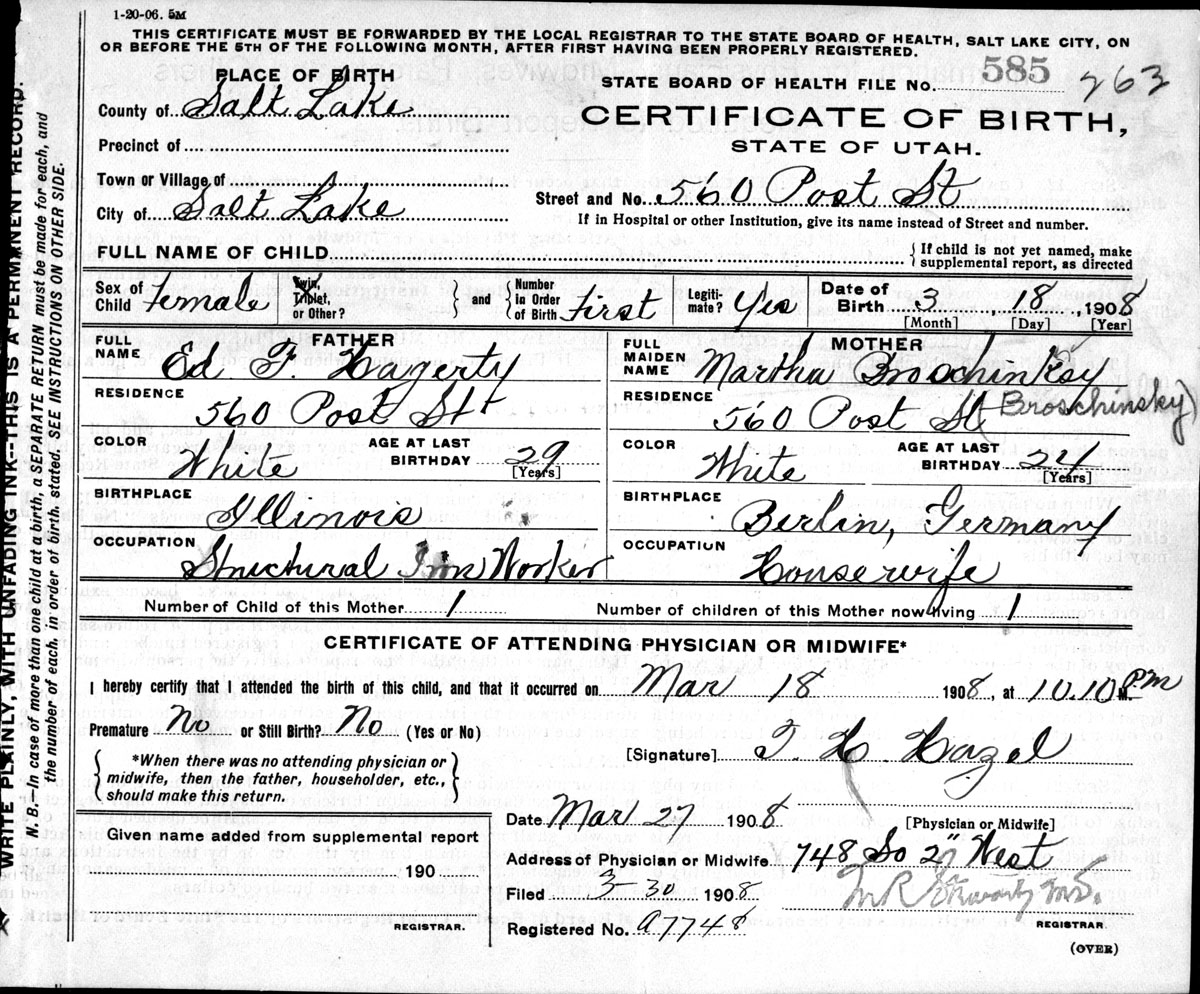 1-20-06. 5M
THIS CERTIFICATE MUST BE FORWARDED BY THE LOCAL REGISTRAR TO THE STATE BOARD OF HEALTH, SALT LAKE CITY, ON
OR BEFORE THE 5TH OF THE FOLLOWING MONTH, AFTER FIRST HAVING BEEN PROPERLY REGISTERED.
PLACE OF BIRTH
STATE BOARD OF HEALTH FILE No. 585 263
County of Salt Lake
CERTIFICATE OF BIRTH,
Precinct of
STATE OF UTAH.
Town or Village of
Street and No. 560 Post St
City of Salt Lake
If in Hospital or other Institution, give its name instead of Street and number.
FULL NAME OF CHILD
{ If child is not yet named, make
supplemental report, as directed
Sex of Child Female
Twin, Triplet, or Other? } and { Number in Order of Birth First
Legiti-mate? Yes
Date of Birth 3 18 1908
[Month] [Day] [Year]
FATHER
FULL NAME Ed F. Hagerty
RESIDENCE 560 Post St
COLOR White
AGE AT LAST BIRTHDAY 29
[Years]
BIRTHPLACE Illinois
OCCUPATION Structural Iron Worker
MOTHER
FULL MAIDEN NAME Martha Broschinksy
RESIDENCE 560 Post St (Broschinsky)
COLOR White
AGE AT LAST BIRTHDAY
[Years]
BIRTHPLACE Berlin, Germany
OCCUPATION Housewife
Number of Child of this Mother 1 Number of children of this Mother now living 1
CERTIFICATE OF ATTENDING PHYSICIAN OR MIDWIFE*
I hereby certify that I attended the birth of this child, and that it occurred on Mar 18 1908, at 10.10 M. PM
Premature No or Still Birth? No (Yes or No)
{ *When there was no attending physician or
midwife, then the father, householder, etc.,
should make this return. }
[Signature] T. H. Hazel
Date Mar 27 1908
[Physician or Midwife]
Address of Physician or Midwife 748 So 2" West
Filed 3 30 1908
Registered No. A7748
REGISTRAR.
(OVER)
Given name added from supplemental report
190
REGISTRAR.
WRITE PLAINLY, WITH UNFADING INK--THIS IS A PERMANENT RECORD.
N. B.—In case of more than one child at a birth, a SEPARATE RETURN must be made for each, and
the number of each, in order of birth, stated. SEE INSTRUCTIONS ON OTHER SIDE.